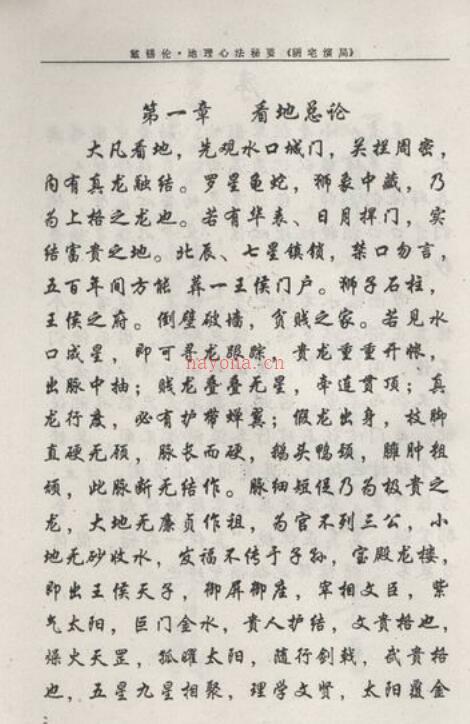 戴锡伦·地理心法秘要《阴宅演局》
第一章 看地总论
大凡看地，先观水口城门，关拦周密，
内有真龙融结。罗星龟蛇，狮象中藏，乃
为上格之龙也。若有华表、日月捍门，实
结富贵之地。北辰、七星镇锁，禁口勿言，
五百年间方能 葬一王侯门户。狮子石柱，
王侯之府。倒壁破墙，贫贱之家。若见水
口成星，即可寻龙跟踪，贵龙重重开帐，
出脉中抽；贱龙叠叠无星，牵连贯顶；真
龙行度，必有护带蝉翼；假龙出身，枝脚
直硬无顿，脉长而硬，鹅头鸭颈，臃肿粗
顽，此脉断无结作。脉细短促乃为极贵之
龙，大地无廉贞作祖，为官不列三公，小
地无砂收水，发福不传于子孙，宝殿龙楼，
即出王侯天子，御屏御座，宰相文臣，紫
气太阳，巨门金水，贵人护结，文贵格也，
燥火天罡，孤曜太阳，随行剑戟，武贵格
也，五星九星相聚，理学文贤，太阳覆金
2
nayona.cn